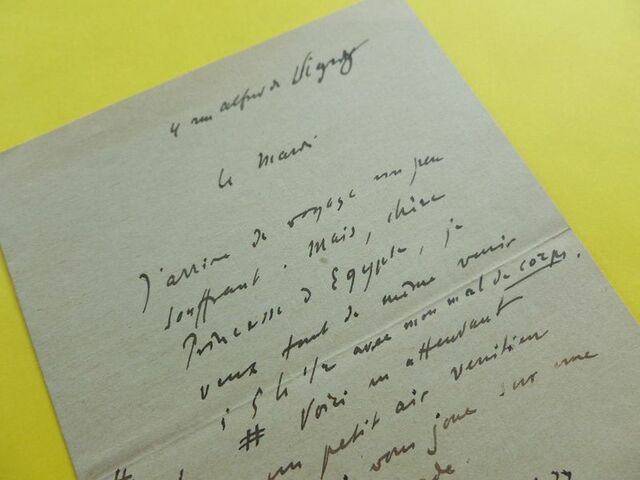 4 rue Alfred de Vigny
le Mardi
J'arrive de voyage un peu
souffrant. Mais, chère
Princesse d'Egypte, je
veux tout de même venir
à 5 h 1/2 avec mon mal de corps.
# Voici en attendant
# un petit air vénitien
vous joue sur une